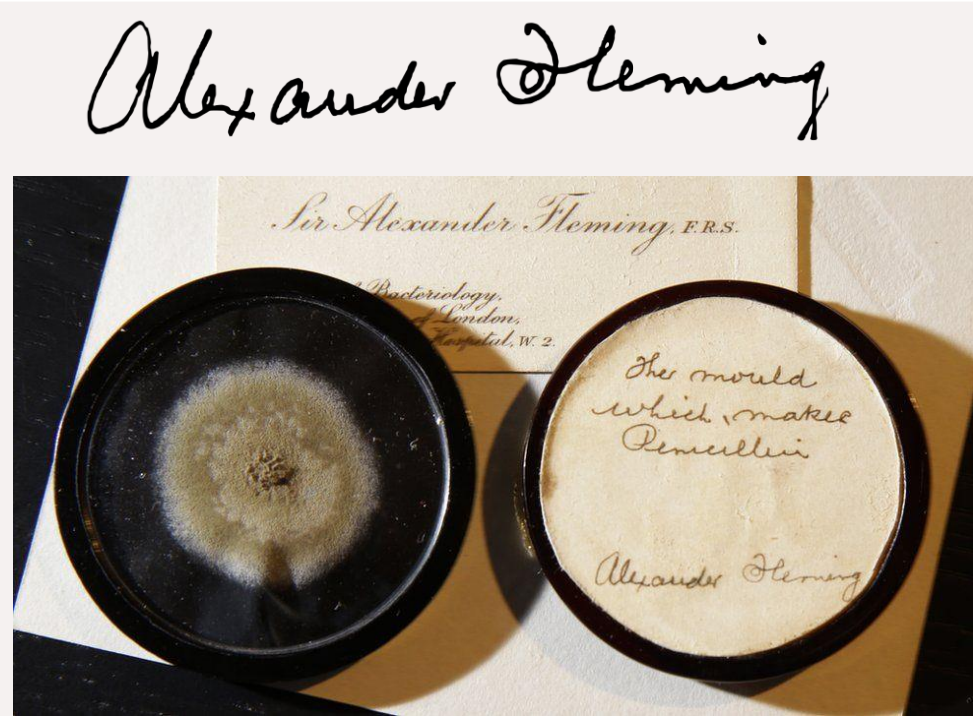 Alexander Fleming
Sir Alexander Fleming, F.R.S.
Bacteriology,
of London,
Hospital, W. 2.
The mould
which makes
Penicillin
Alexander Fleming